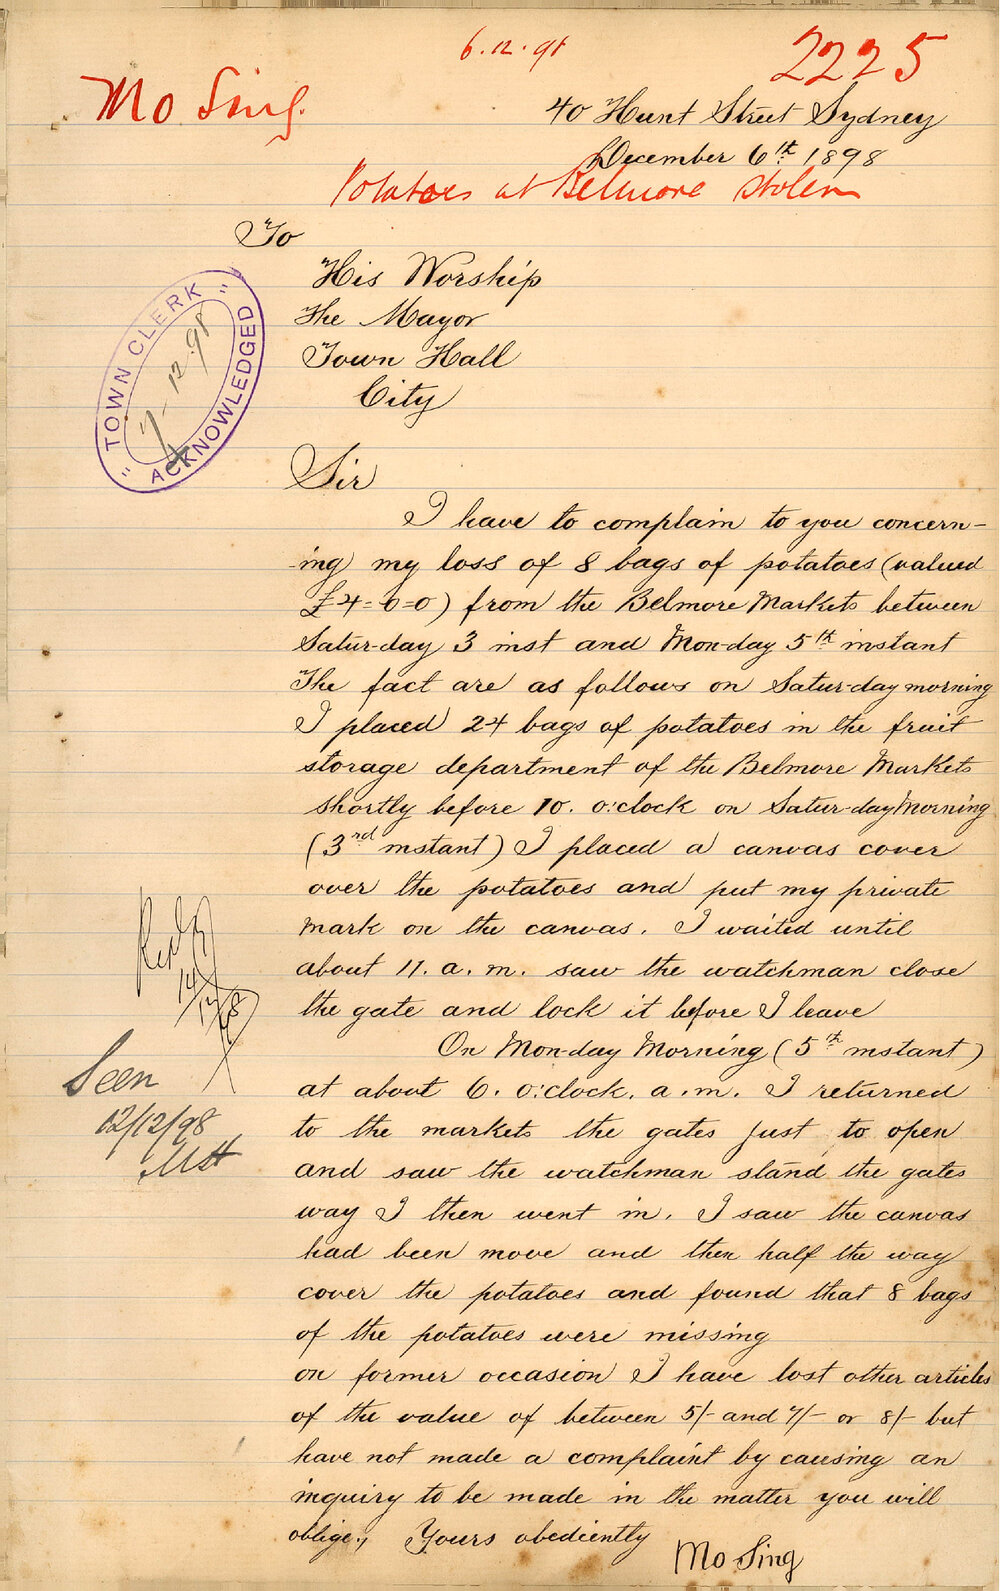 6.12.98
2225
Mo Sing.
40 Hunt Street Sydney
December 6th 1898
Potatoes at Belmore stolen
To
His Worship
The Mayor
Town Hall
City
"TOWN CLERK"
7-12.98
ACKNOWLEDGED
Sir
I have to complain to you concern-
-ing my loss of 8 bags of potatoes (valued
£4=0=0) from the Belmore Markets between
Satur-day 3 inst and Mon-day 5th instant
The fact are as follows on Satur-day morning
I placed 24 bags of potatoes in the fruit
storage department of the Belmore Markets
shortly before 10. o:clock on Satur-day Morning
(3rd instant) I placed a canvas cover
over the potatoes and put my private
mark on the canvas. I waited until
about 11. a. m. saw the watchman close
the gate and lock it before I leave
On Mon-day Morning (5th instant)
at about 6. o:clock. a.m. I returned
to the markets the gates just to open
and saw the watchman stand the gates
way I then went in. I saw the canvas
had been move and then half the way
cover the potatoes and found that 8 bags
of the potatoes were missing
on former occasion I have lost other articles
of the value of between 5/- and 7/- or 8/- but
have not made a complaint by causing an
inquiry to be made in the matter you will
oblige., Yours obediently
Mo Sing
14/12/98
Seen
12/12/98